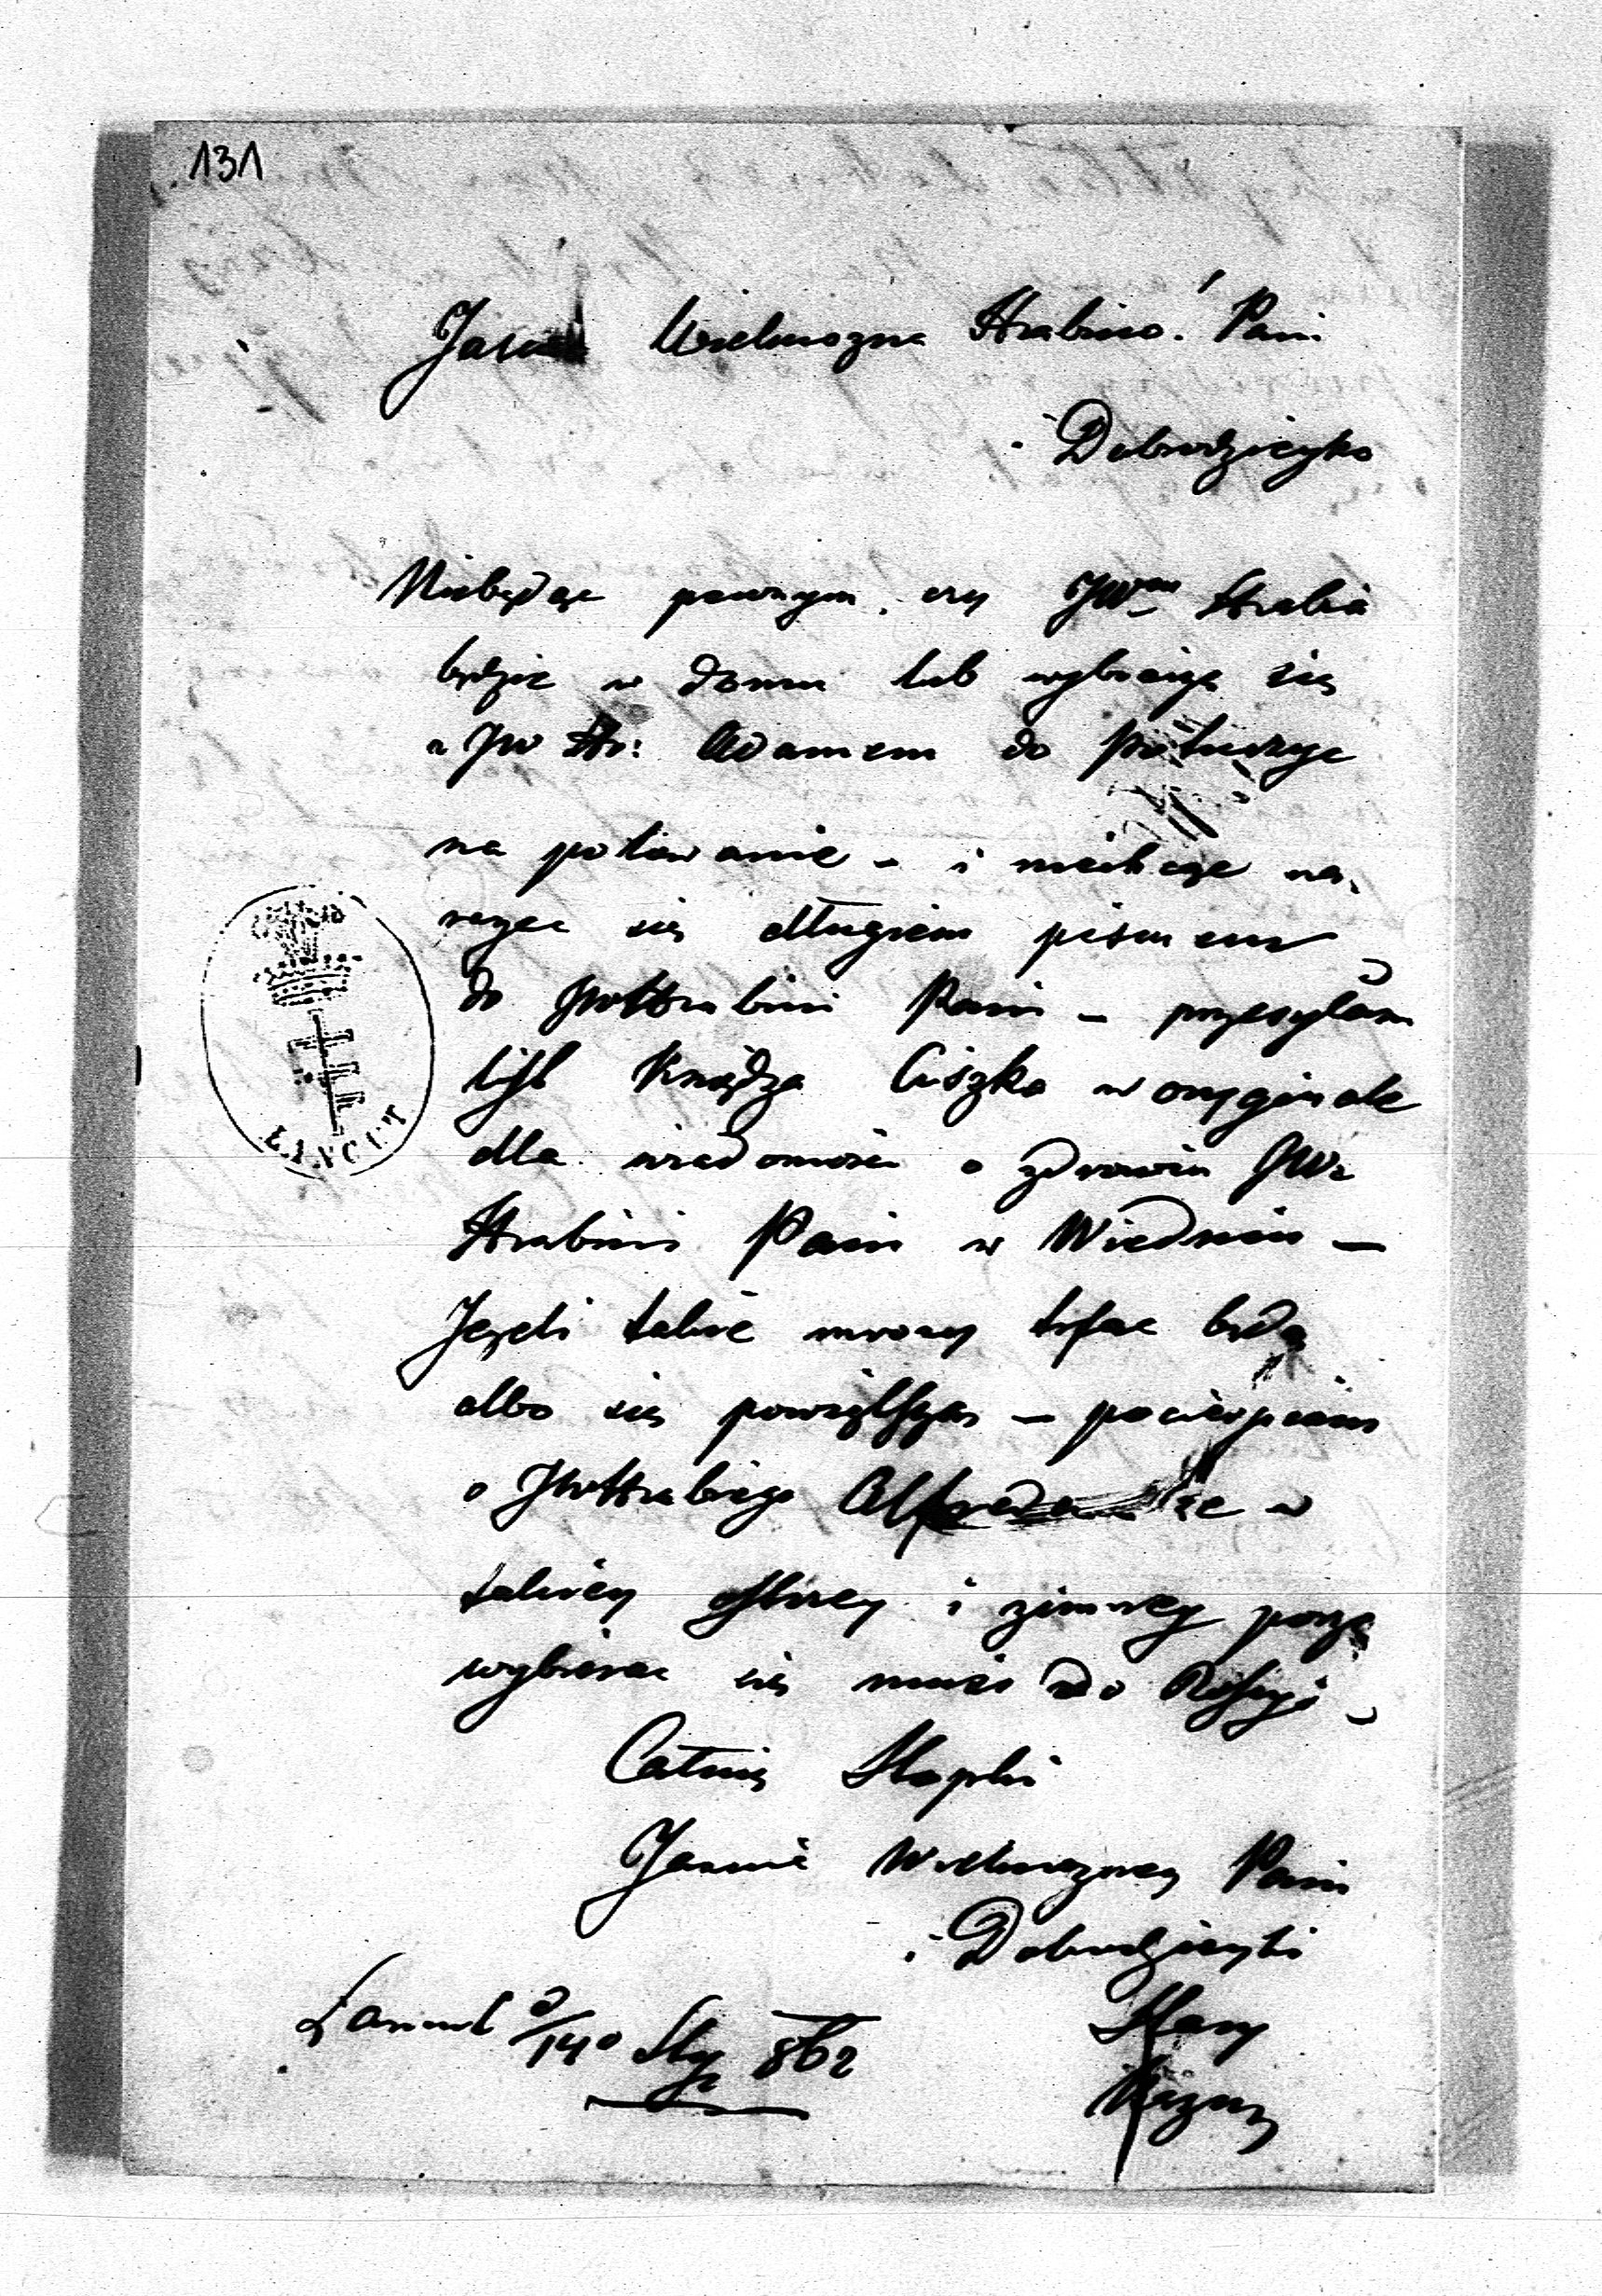 131
Jaśnie Wielmozna Hrabino! Pani
i Dobrodziejko
Niebędąc pewnym, czy JWny Hrabia
będzie w domu lub wybieira się
z JW Hr: Adamem do
na polowanie - i niechcąc na,
rażac się długiem pismem
do JWHrabini Pani - przesyłam
list Księdza Ciszka w oryginale
dla wiadomości o zdrowiu JWe
Hrabini Pani w Wiedniu -
Jeżeli takie mrozy trfac będą
albo się powiększą -
o JWHrabiego Alfreda że w
takiéy ostrey i zimney porze
wybierac się może do Rossyi -
Całuię Stopki
Jasnie Wielmozney Pani
i Dobrodzieyki
Łancut d/14o Sty 862
Stary
LANCUT